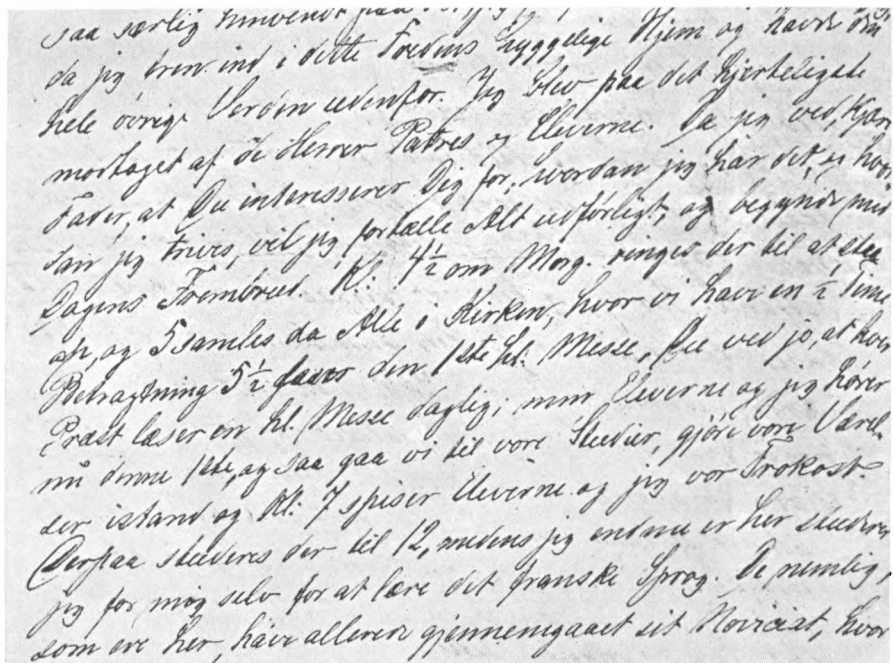 saa særlig henvendt paa
da jeg tren ind i dette Fredens hyggelige Hjem og havde den
hele øvrige Verden udenfor. Jeg blev paa det hjerteligste
modtaget af de Herrer Patres og Eleverne. Da jeg ved, Kjære
Fader, at Du interesserer Dig for, hvordan jeg har det, og hvor-
dan jeg trives, vil jeg fortælle Alt udførligt, og begynde med
Dagens Frembrud. Kl. 4½ om Morg. ringes der til at staa
op, og 5 samles da Alle i Kirken, hvor vi have en ½ Time
Betragtning 5½ den 1ste hl. Messe, Du ved jo, at hver
Præst læser en hl. Messe daglig; men Eleverne og jeg hører
nu denne 1ste, og saa gaa vi til vore Studier, gjøre vore Værel-
ser istand og Kl. 7 spiser Eleverne og jeg vor Frokost.
Derpaa studeres der til 12, medens jeg endnu er her studerer
jeg for mig selv for at lære det franske Sprog. De nemlig,
som ere her, have allerede gjennemgaaet sit Noviciat, hvor